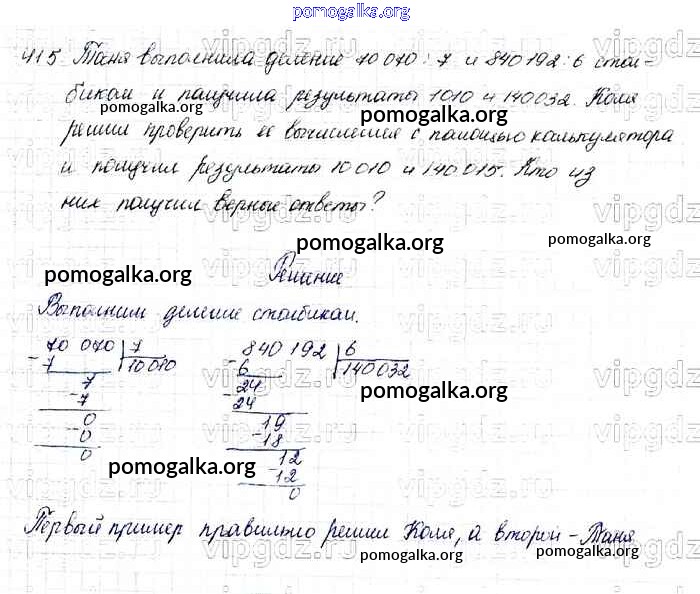 pomogalka.org
415 Таня выполнила деление 70 070 : 7 и 840 192 : 6 стол-
биком и получила результаты 1010 и 140032. Коля
pomogalka.org
pomogalka.org
решил проверить ее вычисления с помощью калькулятора
и получил результаты 10 010 и 140 015. Кто из
pomogalka.org
них получил верные ответы?
pomogalka.org
pomogalka.org
pomogalka.org
Решение
Выполним деление столбиком.
70 070 7
- 7 10 010
7
- 7
0
- 0
0
840 192 6
- 6 140032
24
- 24
19
- 18
12
- 12
0
pomogalka.org
pomogalka.org
pomogalka.org
Первый пример правильно решил Коля, а второй - Таня
pomogalka.org
pomogalka.org
pomogalka.org